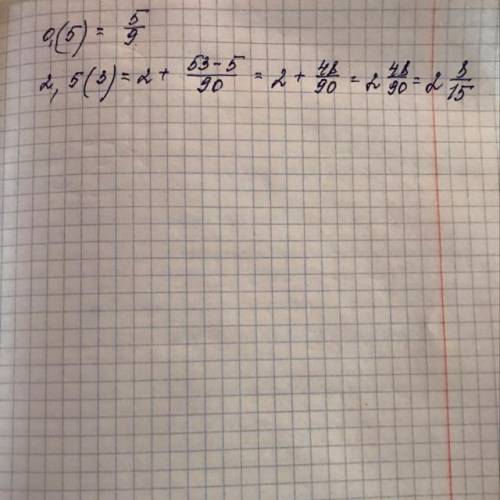 0,(5) = 5/9
2,5(3) = 2 + 53-5/90 = 2 + 48/90 = 2 48/90 = 2 8/15